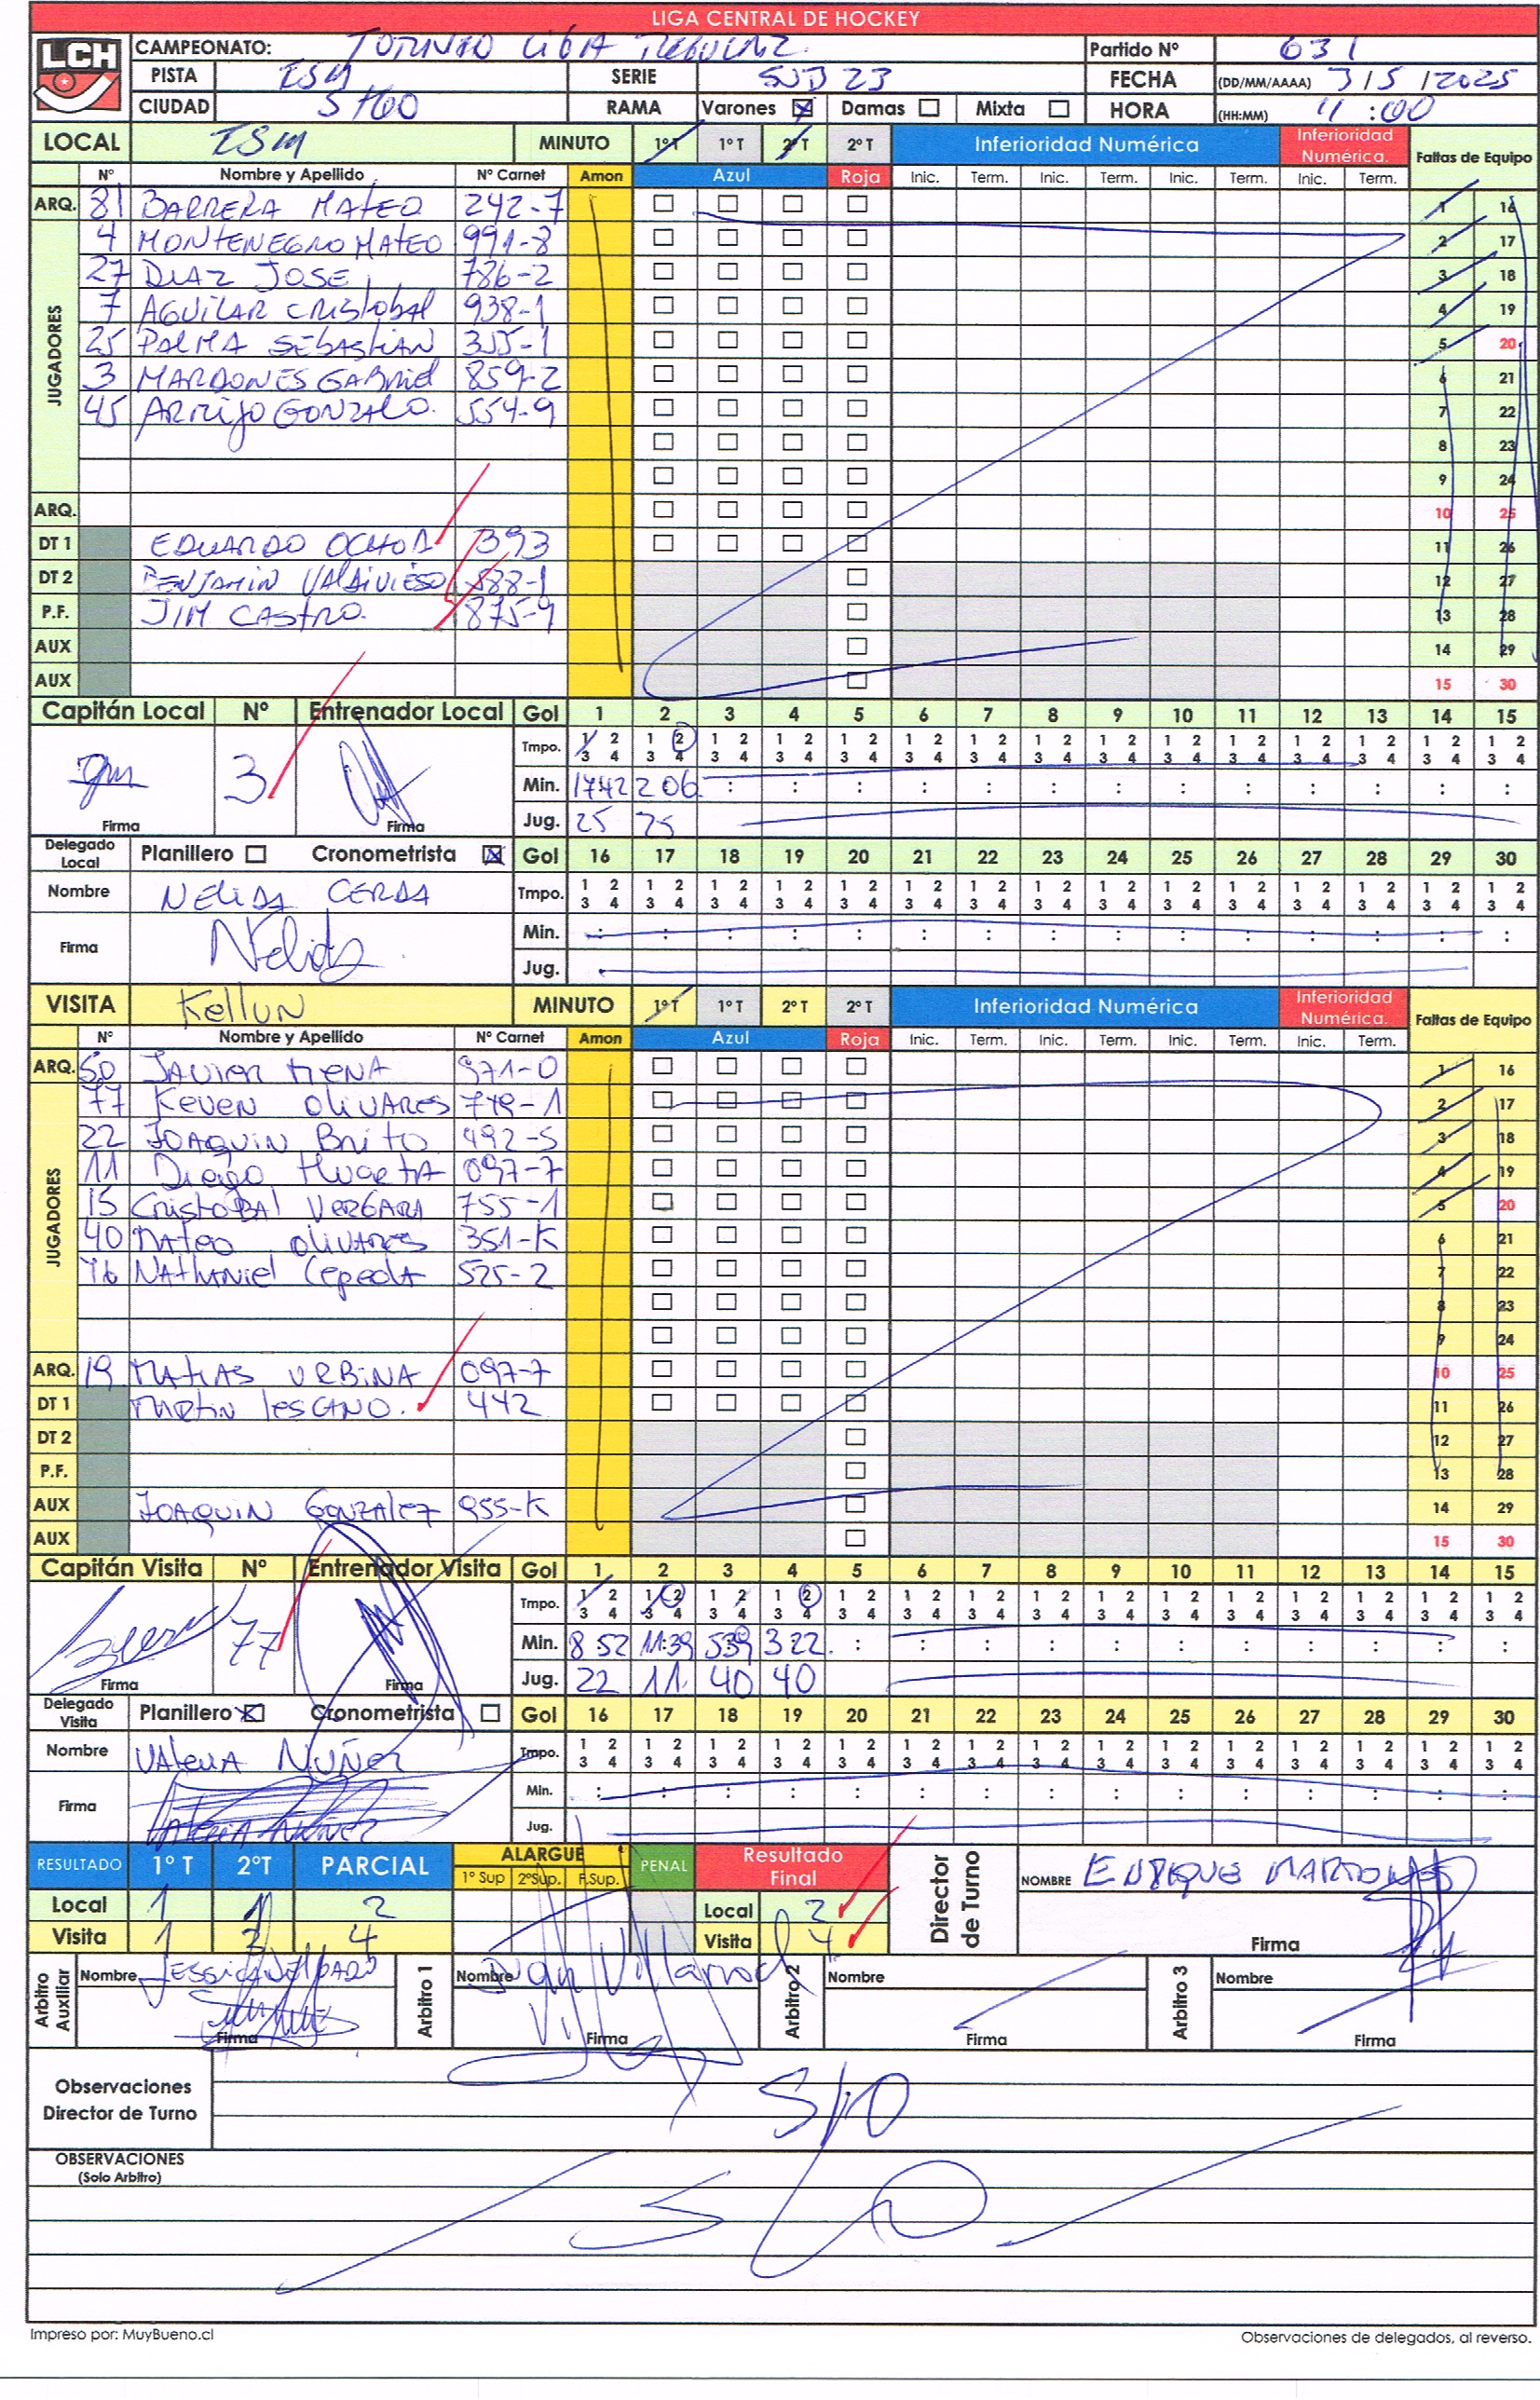 LIGA CENTRAL DE HOCKEY
LCH
CAMPEONATO: TORNEO LIGA
Partido Nº 631
PISTA ISM SERIE SUB 23 FECHA (DD/MM/AAAA) 3/5/2025
CIUDAD STGO RAMA Varones Damas Mixta HORA (HH:MM) 11:00
LOCAL ISM MINUTO 1ºT 1ºT 2ºT 2ºT Inferioridad Numérica Inferioridad Numérica. Faltas de Equipo
Nº Nombre y Apellido Nº Carnet Amon Azul Roja Inic. Term. Inic. Term. Inic. Term. Inic. Term.
ARQ. 81 BARRERA MATEO 242-7 1 16
JUGADORES
4 MONTENEGRO MATEO 991-8 2 17
27 DIAZ JOSE 786-2 3 18
7 AGUILAR CRISTOBAL 938-1 4 19
25 PALMA SEBASTIAN 355-1 5 20
3 MARDONES GABRIEL 859-2 6 21
45 ARMIJO GONZALO. 554-9 7 22
8 23
9 24
ARQ. 10 25
DT 1 EDUARDO OCHOA 393 11 26
DT 2 BENJAMIN VALDIVIESO 588-1 12 27
P.F. JIM CASTRO. 875-9 13 28
AUX 14 29
AUX 15 30
Capitán Local Nº Entrenador Local Gol 1 2 3 4 5 6 7 8 9 10 11 12 13 14 15
3
Tmpo. 1 2 3 4 1 2 3 4 1 2 3 4 1 2 3 4 1 2 3 4 1 2 3 4 1 2 3 4 1 2 3 4 1 2 3 4 1 2 3 4 1 2 3 4 1 2 3 4 1 2 3 4 1 2 3 4 1 2 3 4
Min. 1742 206
Firma Firma Jug. 25 25
Delegado Local Planillero Cronometrista Gol 16 17 18 19 20 21 22 23 24 25 26 27 28 29 30
Nombre NELIDA CERDA Tmpo. 1 2 3 4 1 2 3 4 1 2 3 4 1 2 3 4 1 2 3 4 1 2 3 4 1 2 3 4 1 2 3 4 1 2 3 4 1 2 3 4 1 2 3 4 1 2 3 4 1 2 3 4 1 2 3 4 1 2 3 4
Firma Nelida Min.
Jug.
VISITA Kellun MINUTO 1ºT 1ºT 2ºT 2ºT Inferioridad Numérica Inferioridad Numérica. Faltas de Equipo
Nº Nombre y Apellido Nº Carnet Amon Azul Roja Inic. Term. Inic. Term. Inic. Term. Inic. Term.
ARQ. 50 JAVIER MENA 971-0 1 16
JUGADORES
77 Keven OLIVARES 748-1 2 17
22 JOAQUIN Brito 492-5 3 18
11 Diego Huerta 097-7 4 19
15 CristoBAl VERGARA 755-1 5 20
40 MATEO OLIVARES 351-K 6 21
76 NAthaniel Cepeda 525-2 7 22
8 23
9 24
ARQ. 19 MATIAS URBINA 097-7 10 25
DT 1 Martin lescano. 442 11 26
DT 2 12 27
P.F. 13 28
AUX JOAQUIN Gonzalez 955-K 14 29
AUX 15 30
Capitán Visita Nº Entrenador Visita Gol 1 2 3 4 5 6 7 8 9 10 11 12 13 14 15
77
Tmpo. 1 2 3 4 1 2 3 4 1 2 3 4 1 2 3 4 1 2 3 4 1 2 3 4 1 2 3 4 1 2 3 4 1 2 3 4 1 2 3 4 1 2 3 4 1 2 3 4 1 2 3 4 1 2 3 4 1 2 3 4
Min. 8 52 11:39 539 3 22
Firma Firma Jug. 22 11 40 40
Delegado Visita Planillero Cronometrista Gol 16 17 18 19 20 21 22 23 24 25 26 27 28 29 30
Nombre VAleriA NUÑEZ Tmpo. 1 2 3 4 1 2 3 4 1 2 3 4 1 2 3 4 1 2 3 4 1 2 3 4 1 2 3 4 1 2 3 4 1 2 3 4 1 2 3 4 1 2 3 4 1 2 3 4 1 2 3 4 1 2 3 4 1 2 3 4
Firma Min.
Jug.
RESULTADO 1º T 2ºT PARCIAL ALARGUE 1º Sup 2ºSup. F.Sup. PENAL Resultado Final Director de Turno NOMBRE ENRIQUE MARDONES
Local 1 1 2 Local 2
Visita 1 3 4 Visita 4 Firma
Arbitro Auxiliar Nombre JESSICA DELGADO Arbitro 1 Nombre Villarroel Arbitro 2 Nombre Arbitro 3 Nombre
Firma Firma Firma Firma
Observaciones Director de Turno S/O
OBSERVACIONES (Solo Arbitro) S/O
Impreso por: MuyBueno.cl
Observaciones de delegados, al reverso.